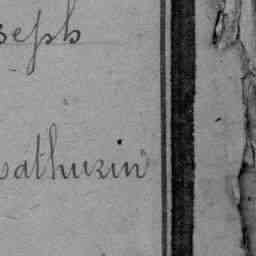 seph
athurin